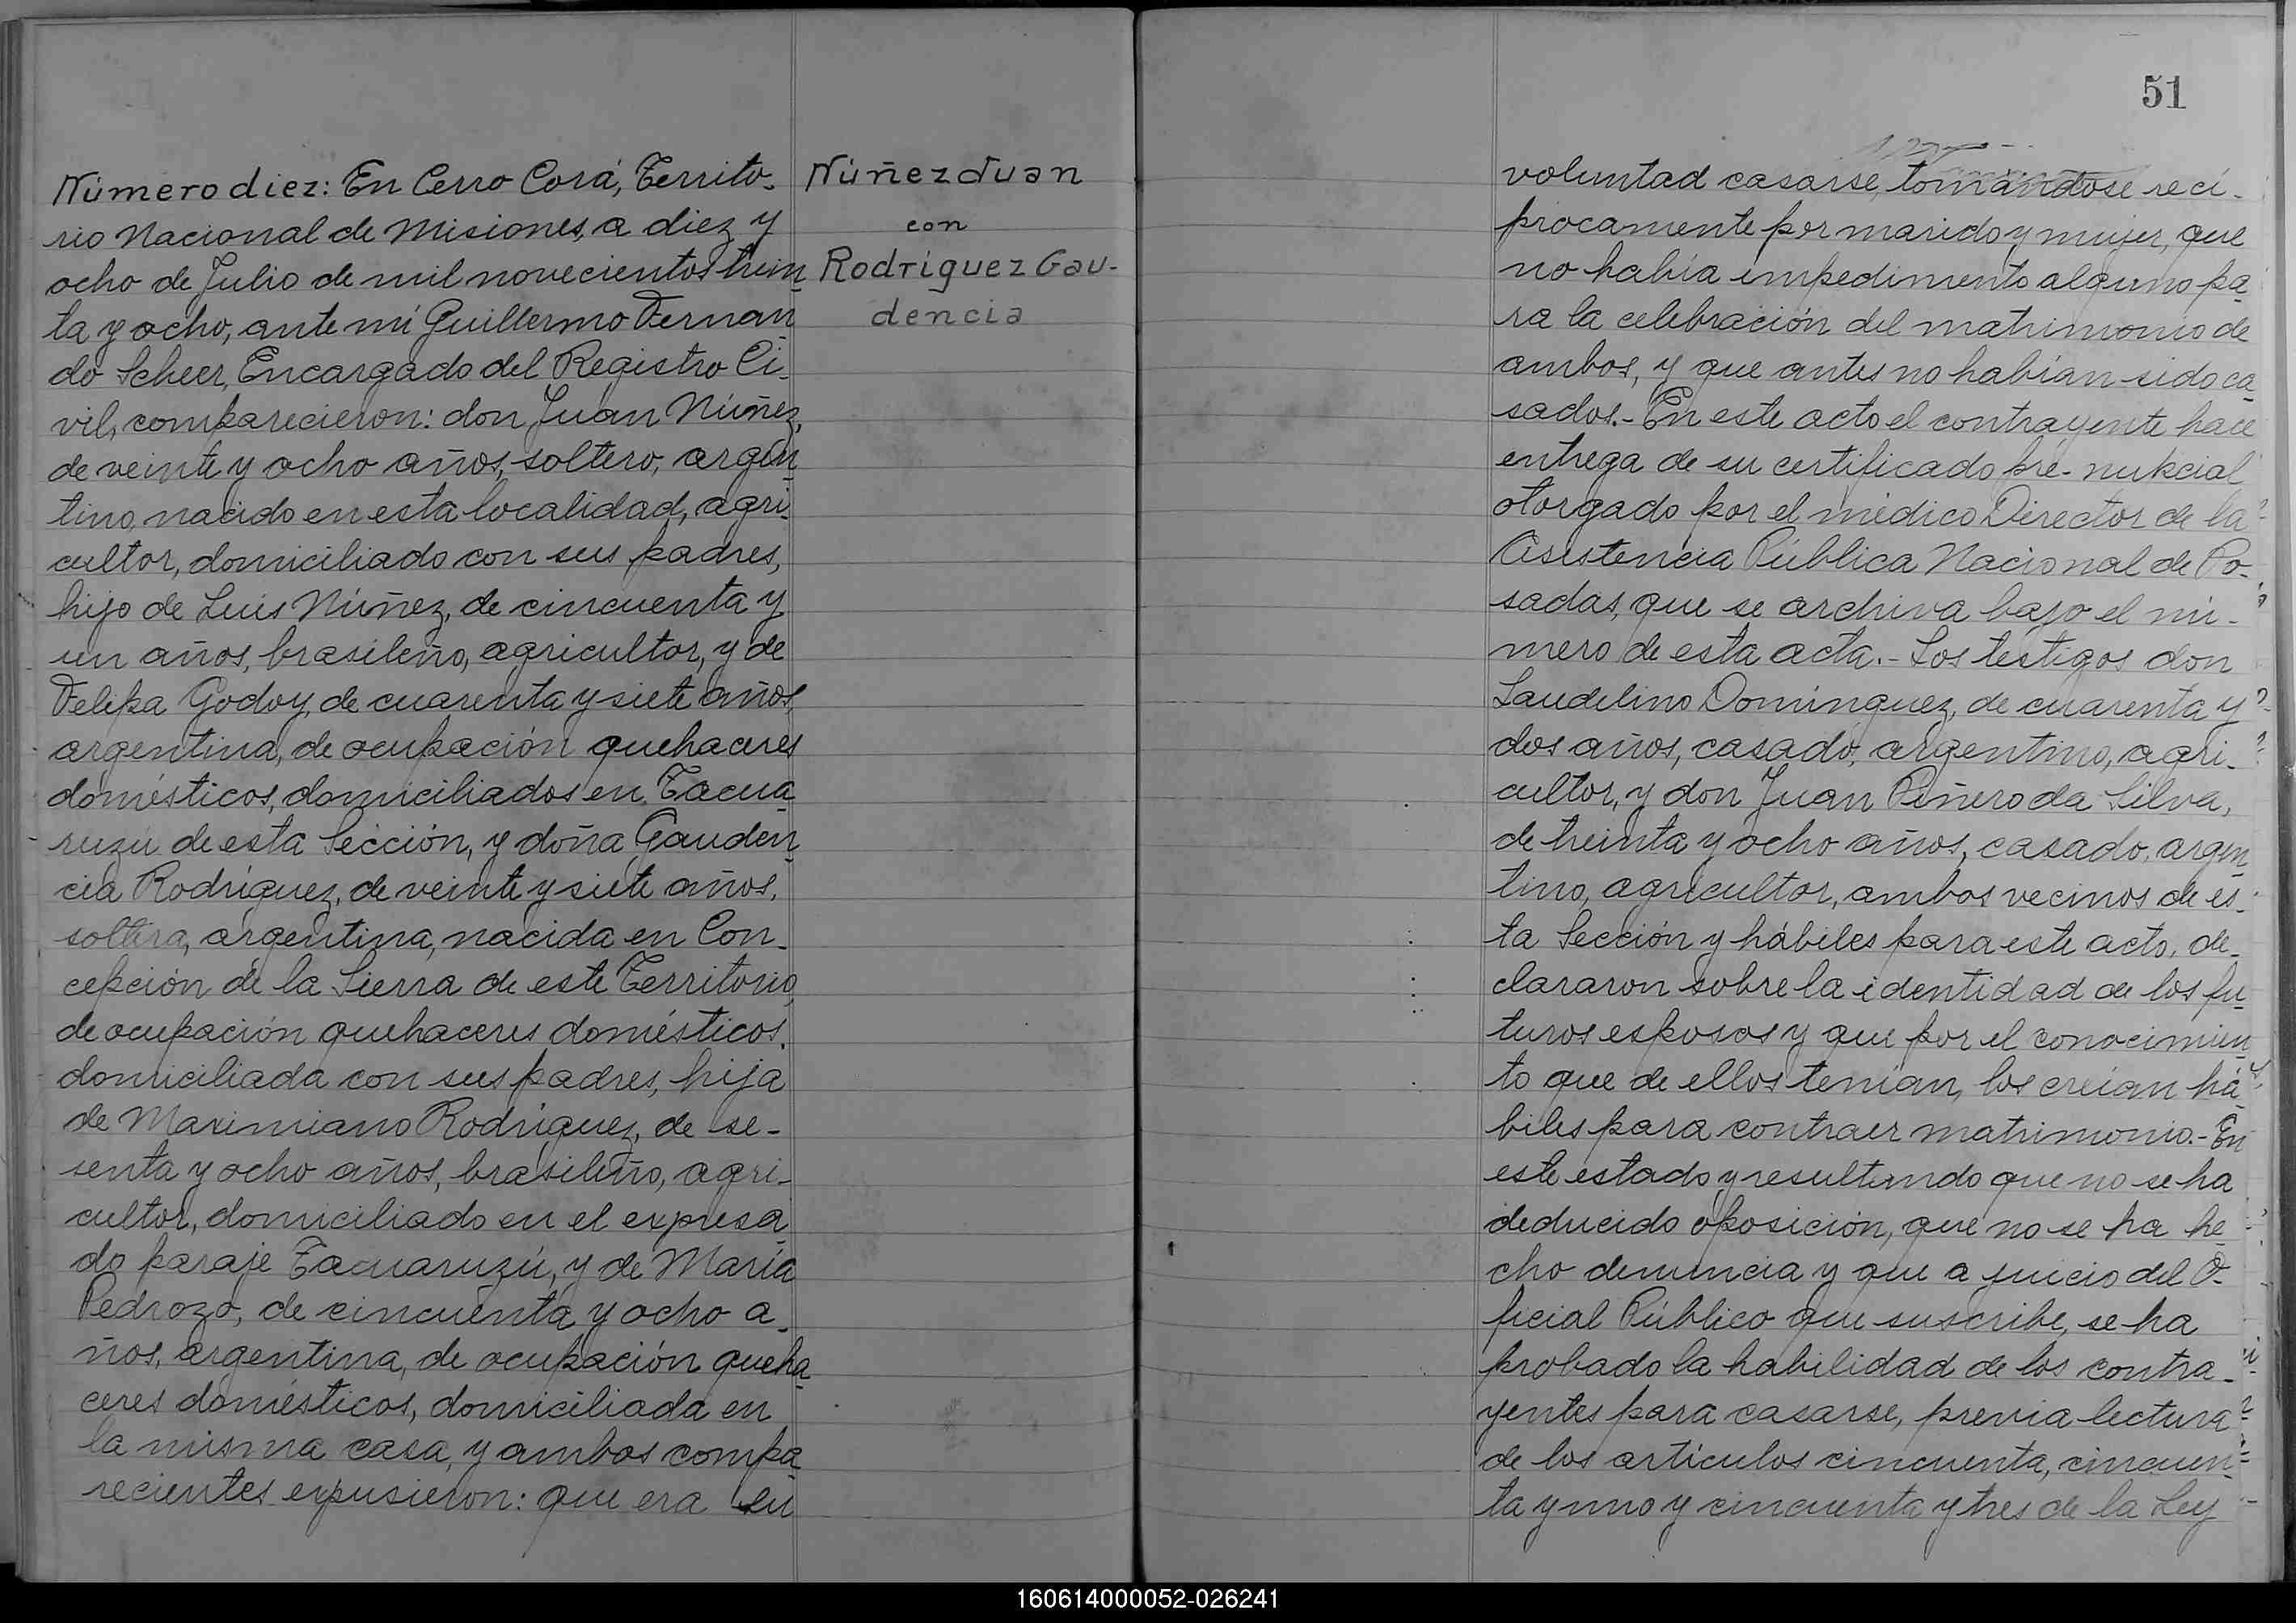 Número diez: En Cerro Corá, Territo-
rio Nacional de Misiones, a diez y
ocho de Julio de mil novecientos trein
ta y ocho, ante mí Guillermo Fernan
do Scheer, Encargado del Registro Ci-
vil, comparecieron: don Juan Núñez,
de veinte y ocho años, soltero, argen
tino, nacido en esta localidad, agri-
cultor, domiciliado con sus padres,
hijo de Luis Núñez, de cincuenta y
un años, brasileño, agricultor, y de
Felipa Godoy, de cuarenta y siete años,
argentina, de ocupación quehaceres
domésticos, domiciliados en Tacua
ruzú de esta Sección, y doña Gauden
cia Rodríguez, de veinte y siete años,
soltera, argentina, nacida en Con-
cepción de la Sierra de este Territorio,
de ocupación quehaceres domésticos,
domiciliada con sus padres, hija
de Maximiano Rodríguez, de se-
senta y ocho años, brasileño, agri-
cultor, domiciliado en el expresa
do paraje Tacuaruzú, y de María
Pedrozo, de cincuenta y ocho a-
ños, argentina, de ocupación queha
ceres domésticos, domiciliada en
la misma casa, y ambos compa
recientes expusieron: que era su
Núñez Juan
con
Rodríguez Gau-
dencia
51
voluntad casarse, tomándose recí-
procamente por marido y mujer, que
no había impedimento alguno pa
ra la celebración del matrimonio de
ambos, y que antes no habían sido ca
sados.- En este acto el contrayente hace
entrega de su certificado pre-nupcial
otorgado por el médico Director de la
Asistencia Pública Nacional de Po-
sadas, que se archiva bajo el nú-
mero de esta acta.- Los testigos don
Laudelino Domínguez, de cuarenta y
dos años, casado, argentino, agri-
cultor, y don Juan Piñero da Silva,
de treinta y ocho años, casado, argen
tino, agricultor, ambos vecinos de es-
ta Sección y hábiles para este acto, de-
clararon sobre la identidad de los fu
turos esposos y que por el conocimien
to que de ellos tenían, los creían há
biles para contraer matrimonio.- En
este estado y resultando que no se ha
deducido oposición, que no se ha he
cho denuncia y que a juicio del O-
ficial Público que suscribe, se ha
probado la habilidad de los contra-
yentes para casarse, previa lectura
de los artículos cincuenta, cincuen-
ta y uno y cincuenta y tres de la Ley
160614000052-026241